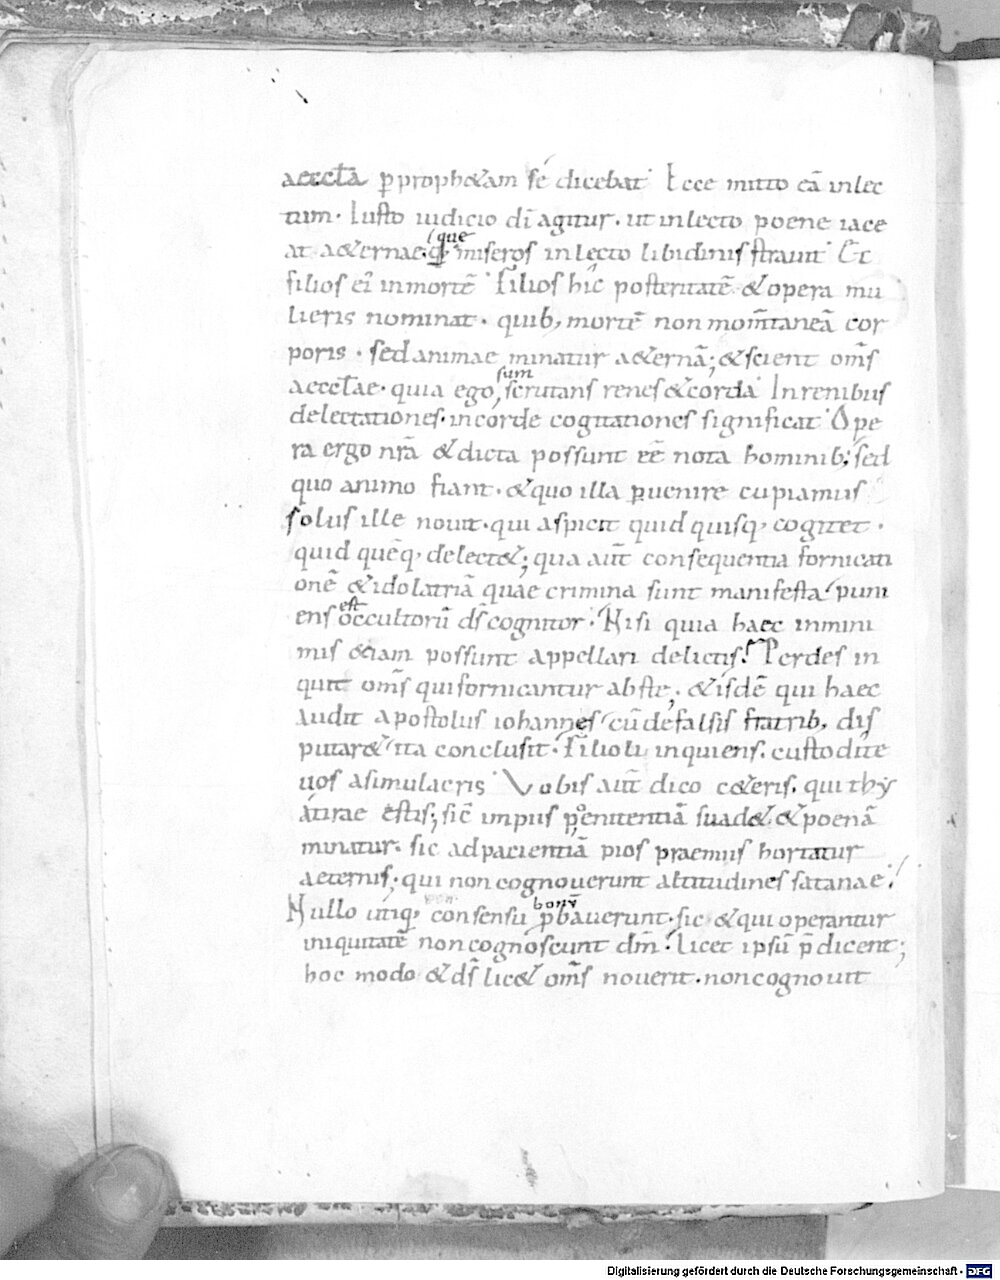 aeccl̄a p̱prophetam sé dicebat. Ecce mitto eā inlec
tum. Iusto iudicio dī agitur. ut inlecto poene iace
at. aeternae. que miseros inlecto libidinis strauit. Et
filios ei᾽ inmortē. Filios híc posteritatē & opera mu
lieris nominat. quib, mortē non mom̄taneā cor
poris. sed animae minatur a&ernā; & scient om̄s
aeccl̄ae. quia ego, sum scrutans renes & corda. Inrenibus
delectationes. incorde cogitationes significat. Ope
ra ergo nr̄a & dicta possunt eē nota hominib; sed
quo animo fiant. & quo illa p̱uenire cupiamus
solus ille nouit. qui aspicit quid quisq, cogitet.
quid quēq, delect&; qua aut̄ consequentia fornicati
onē & idolatriā quae crimina sunt manifesta puni
ens est occultorū ds̄ cognitor. Nisi quia haec inmini
mis &iam possunt appellari delictis. Perdes in
quit om̄s qui fornicantur abste; & isdē qui haec
audit apostolus iohannes cū defalsis fratrib, dis
putar& ita conclusit. Filioli inquiens. custodite
uos asimulacris. Vobis aut̄ dico c&eris. qui thy
atirae estis; sic̄ impiis p̱enitentiā suad& & poenā
minatur. sic adpacientiā pios praemiis hortatur
aeternis; qui non cognouerunt altitudines satanae.
Nullo utiq, consensu p̱bauerunt. sic & qui operantur
iniquitatē non cognoscunt dm̄. licet ipsū p̄dicent;
hoc modo & ds̄ lic& om̄s nouerit. non cognouit
Digitalisierung gefördert durch die Deutsche Forschungsgemeinschaft - DFG